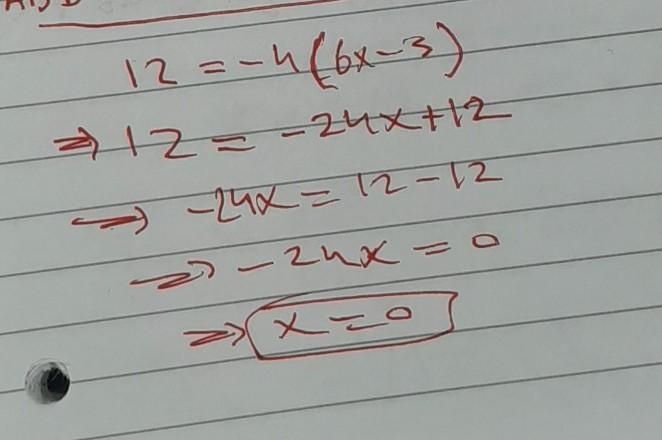 12 = -4(6x-3)
⇒ 12 = -24x+12
⇒ -24x = 12-12
⇒ -24x = 0
⇒ x = 0